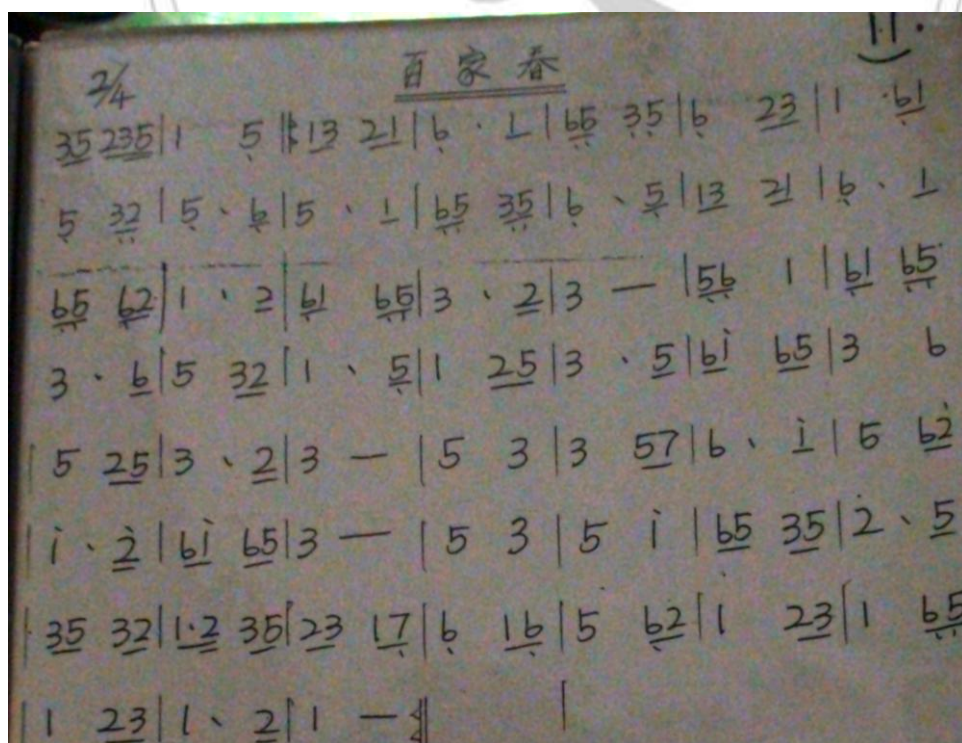 11.
百家春
2/4
35 235 | 1 5 ‖: 13 21 | 6 · 1 | 65 35 | 6 23 | 1 · 61
5 32 | 5 · 6 | 5 · 1 | 65 35 | 6 · 5 | 13 21 | 6 · 1
65 62 | 1 · 2 | 61 65 | 3 · 2 | 3 — | 56 1 | 61 65
3 · 6 | 5 32 | 1 · 5 | 1 25 | 3 · 5 | 61 65 | 3 6
| 5 25 | 3 · 2 | 3 — | 5 3 | 3 57 | 6 · 1 | 5 62
| 1 · 2 | 61 65 | 3 — | 5 3 | 5 1 | 65 35 | 2 · 5
| 35 32 | 1·2 35 | 23 17 | 6 16 | 5 62 | 1 23 | 1 65
| 1 23 | 1 · 2 | 1 — :‖